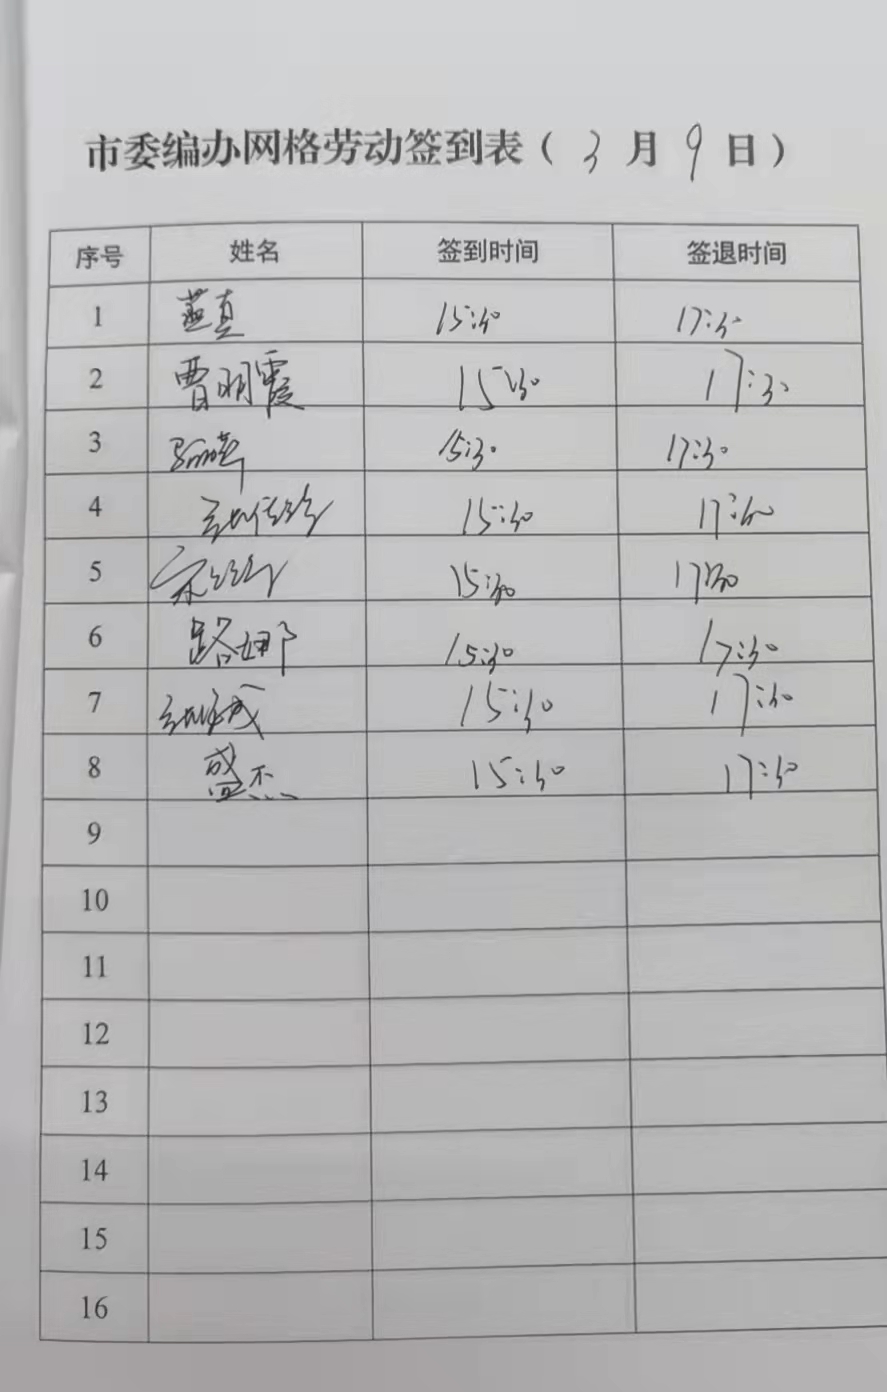 市委编办网格劳动签到表（3月9日）
序号 姓名 签到时间 签退时间
1 15:30 17:30
2 曹明霞 15:30 17:30
3 15:30 17:30
4 15:30 17:30
5 15:30 17:30
6 路娜 15:30 17:30
7 15:30 17:30
8 盛杰 15:30 17:30
9
10
11
12
13
14
15
16